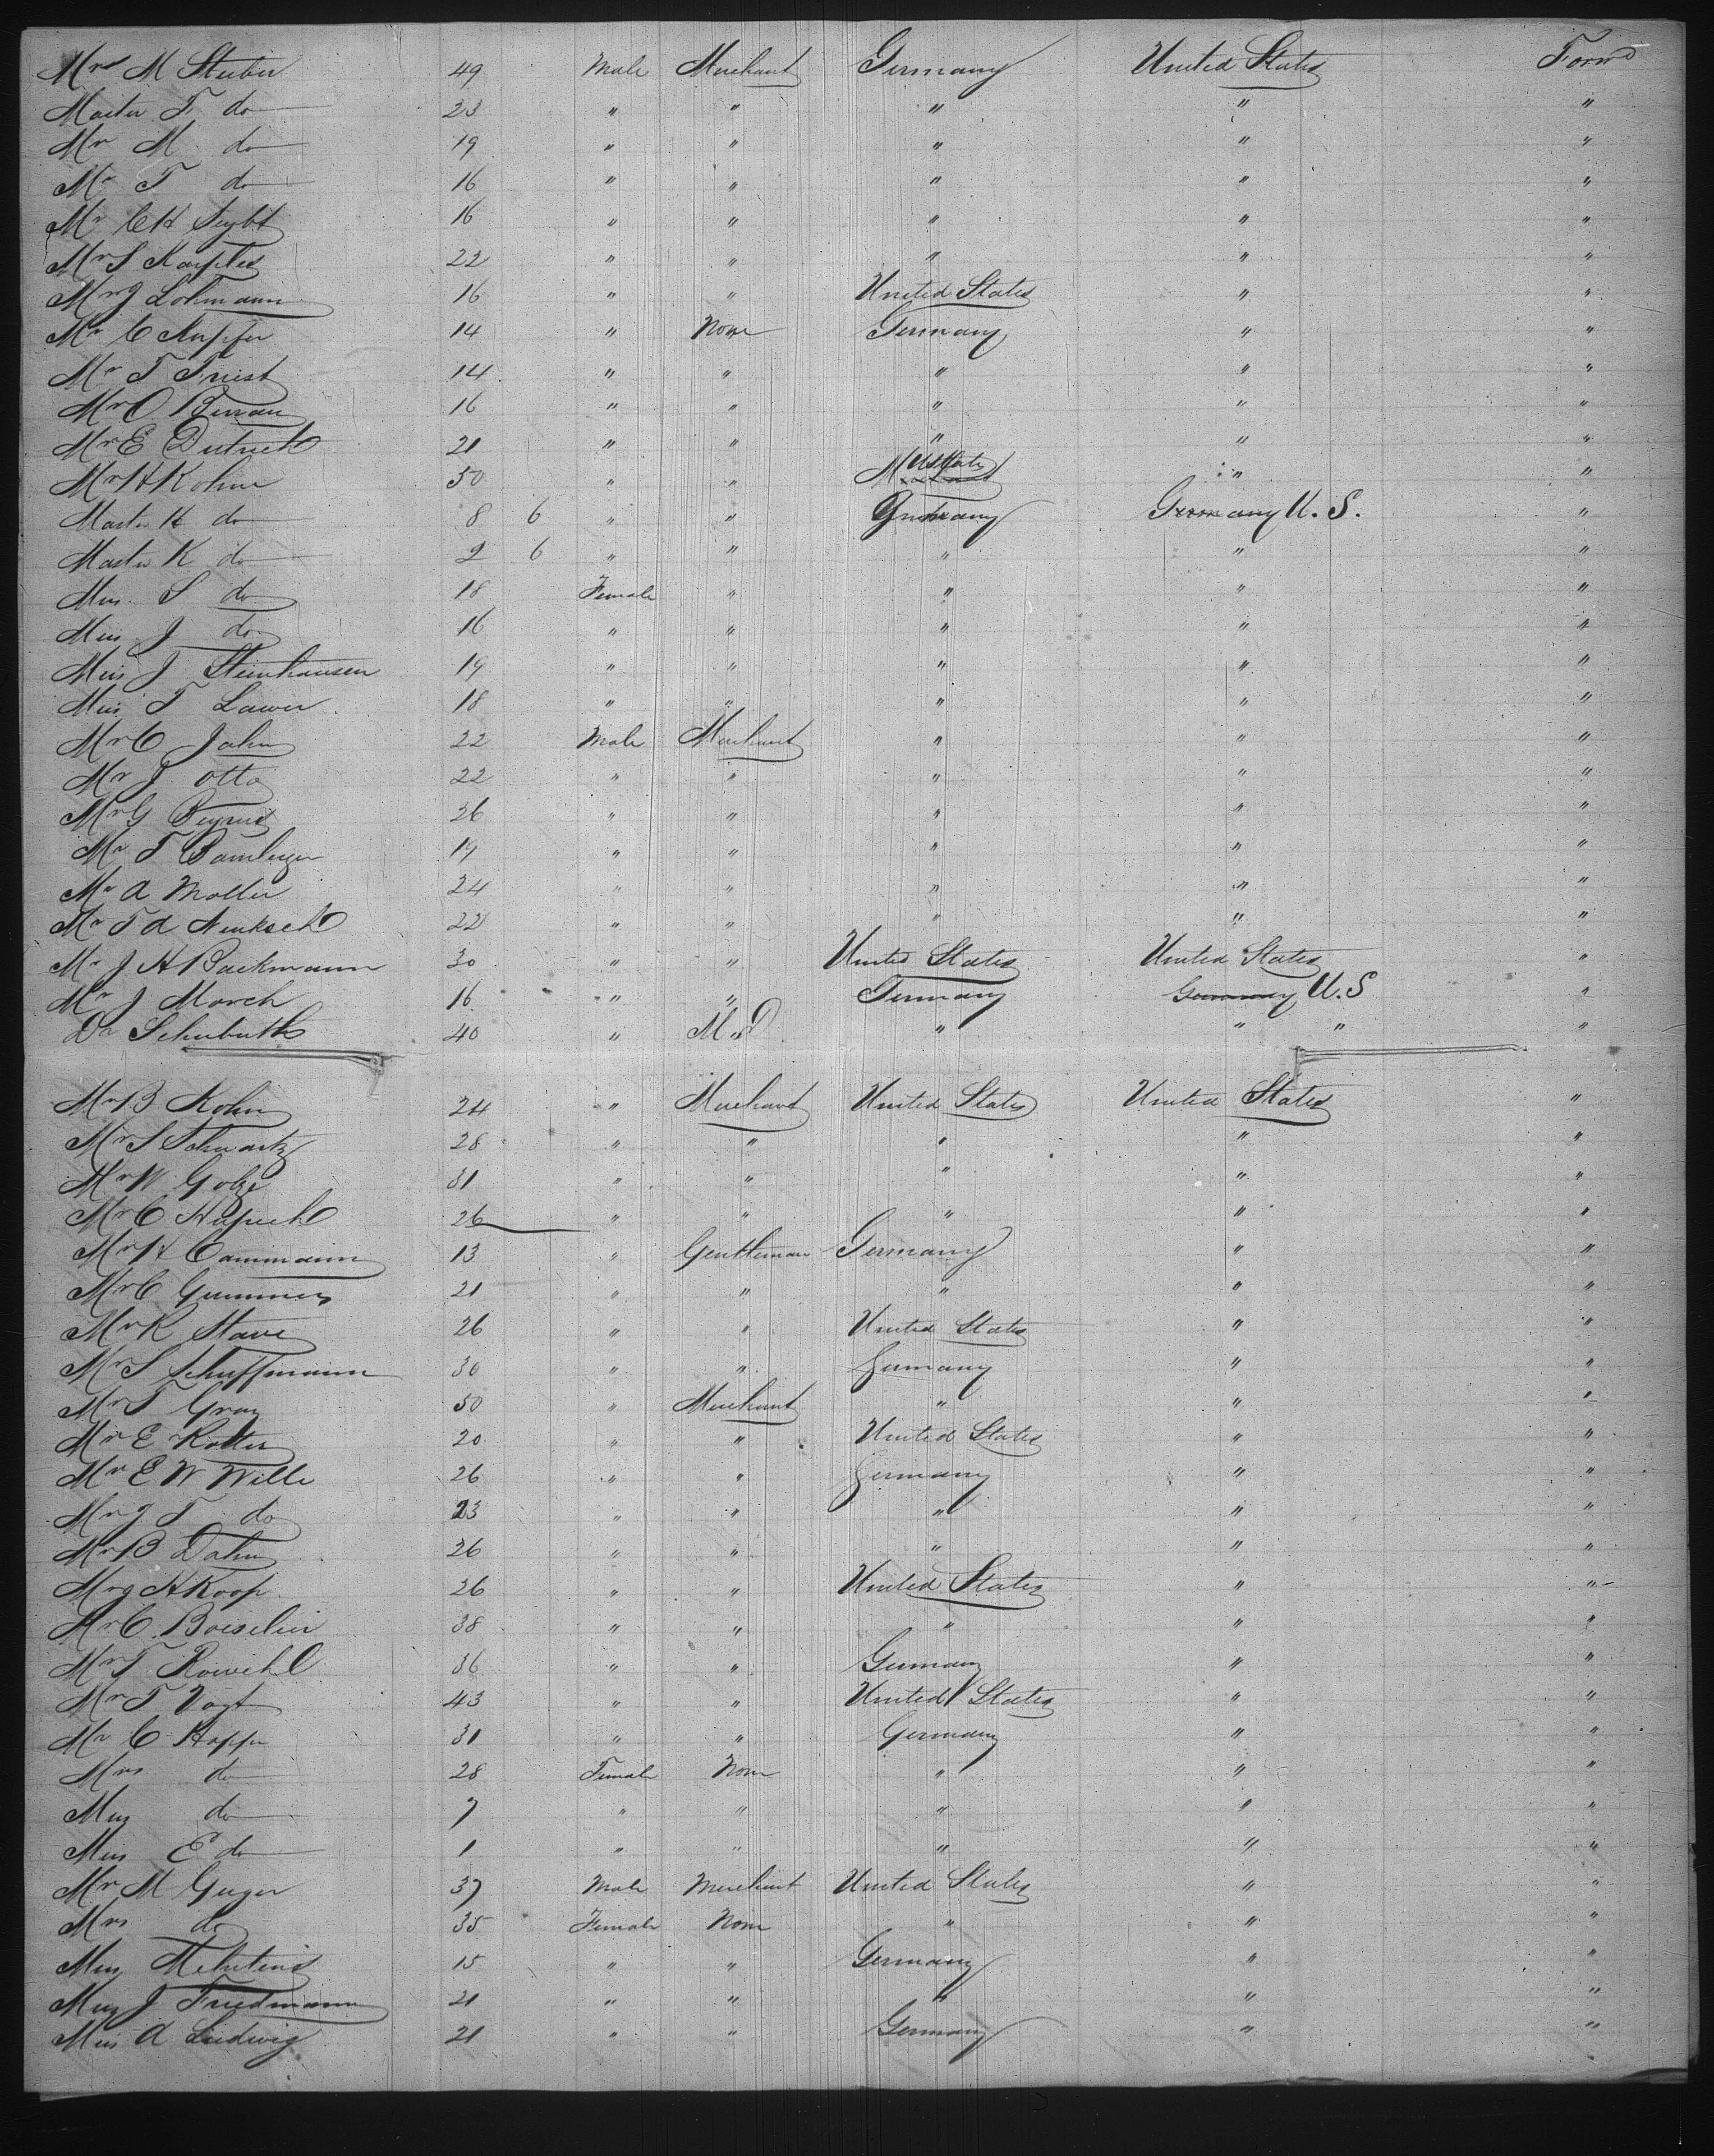 Mrs M Stuber 49 Male Merchant Germany United States Forwd
Master F. do 23 " " " " "
Mr M. do 19 " " " " "
Mr F do 16 " " " " "
Mr C H Seybt 16 " " " " "
Mr S Karples 22 " " " " "
Mr J Lohmann 16 " " United States " "
Mr C Kupfer 14 " None Germany " "
Mr F Friest 14 " " " " "
Mr O 16 " " " " "
Mr E Dietrich 21 " " " " "
Mr H Kohn 50 " " U States " "
Master H do 8 6 " " Germany Germany U. S. "
Master K do 2 6 " " " " "
Miss S do 18 Female " " " "
Miss J do 16 " " " " "
Miss J Steinhausen 19 " " " " "
Miss F Lawer 18 " " " " "
Mr C Jahn 22 Male Merchant " " "
Mr J. Otto 22 " " " " "
Mr G 26 " " " " "
Mr F Bamberger 19 " " " " "
Mr A Moller 24 " " " " "
Mr F A 22 " " " " "
Mr J H Backmann 30 " " United States United States "
Mr J March 16 " " Germany Germany U.S "
Dr Schuberth 40 " M.D " " " "
Mr B Kohn 24 " Merchant United States United States "
Mr S Schwartz 28 " " " " "
Mr W Golze 31 " " " " "
Mr C 26 " " " " "
Mr H Cammann 13 " Gentleman Germany " "
Mr C Gummers 21 " " " " "
Mr K Stave 26 " " United States " "
Mr S Schuffmann 30 " " Germany " "
Mr F Gray 50 " Merchant " " "
Mr E Kotter 20 " " United States " "
Mr E W Wille 26 " " Germany " "
Mr J F do 23 " " " " "
Mr B Dahn 26 " " " " "
Mr J H Koop 26 " " United States " "
Mr C. Boeselier 38 " " " " "
Mr F Rowehl 36 " " Germany " "
Mr F Vogt 43 " " United States " "
Mr C Hoppe 31 " " Germany " "
Mrs do 28 Female None " " "
Miss do 7 " " " " "
Miss E do 1 " " " " "
Mr M Geiger 37 Male Merchant United States " "
Mrs do 35 Female None " " "
Miss Mehrtens 15 " " Germany " "
Miss J Friedmann 21 " " " " "
Miss A Ludwig 21 " " Germany " "